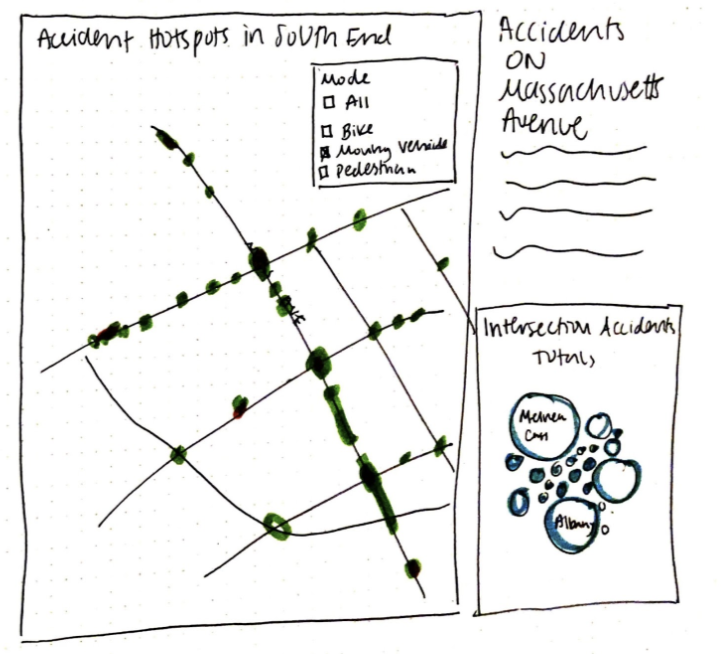 Accident Hotspots in South End
Mode
All
Bike
Moving Vehicle
Pedestrian
Accidents
ON
Massachusetts
Avenue
Intersection Accidents
Totals
Melnea
Cass
Albany